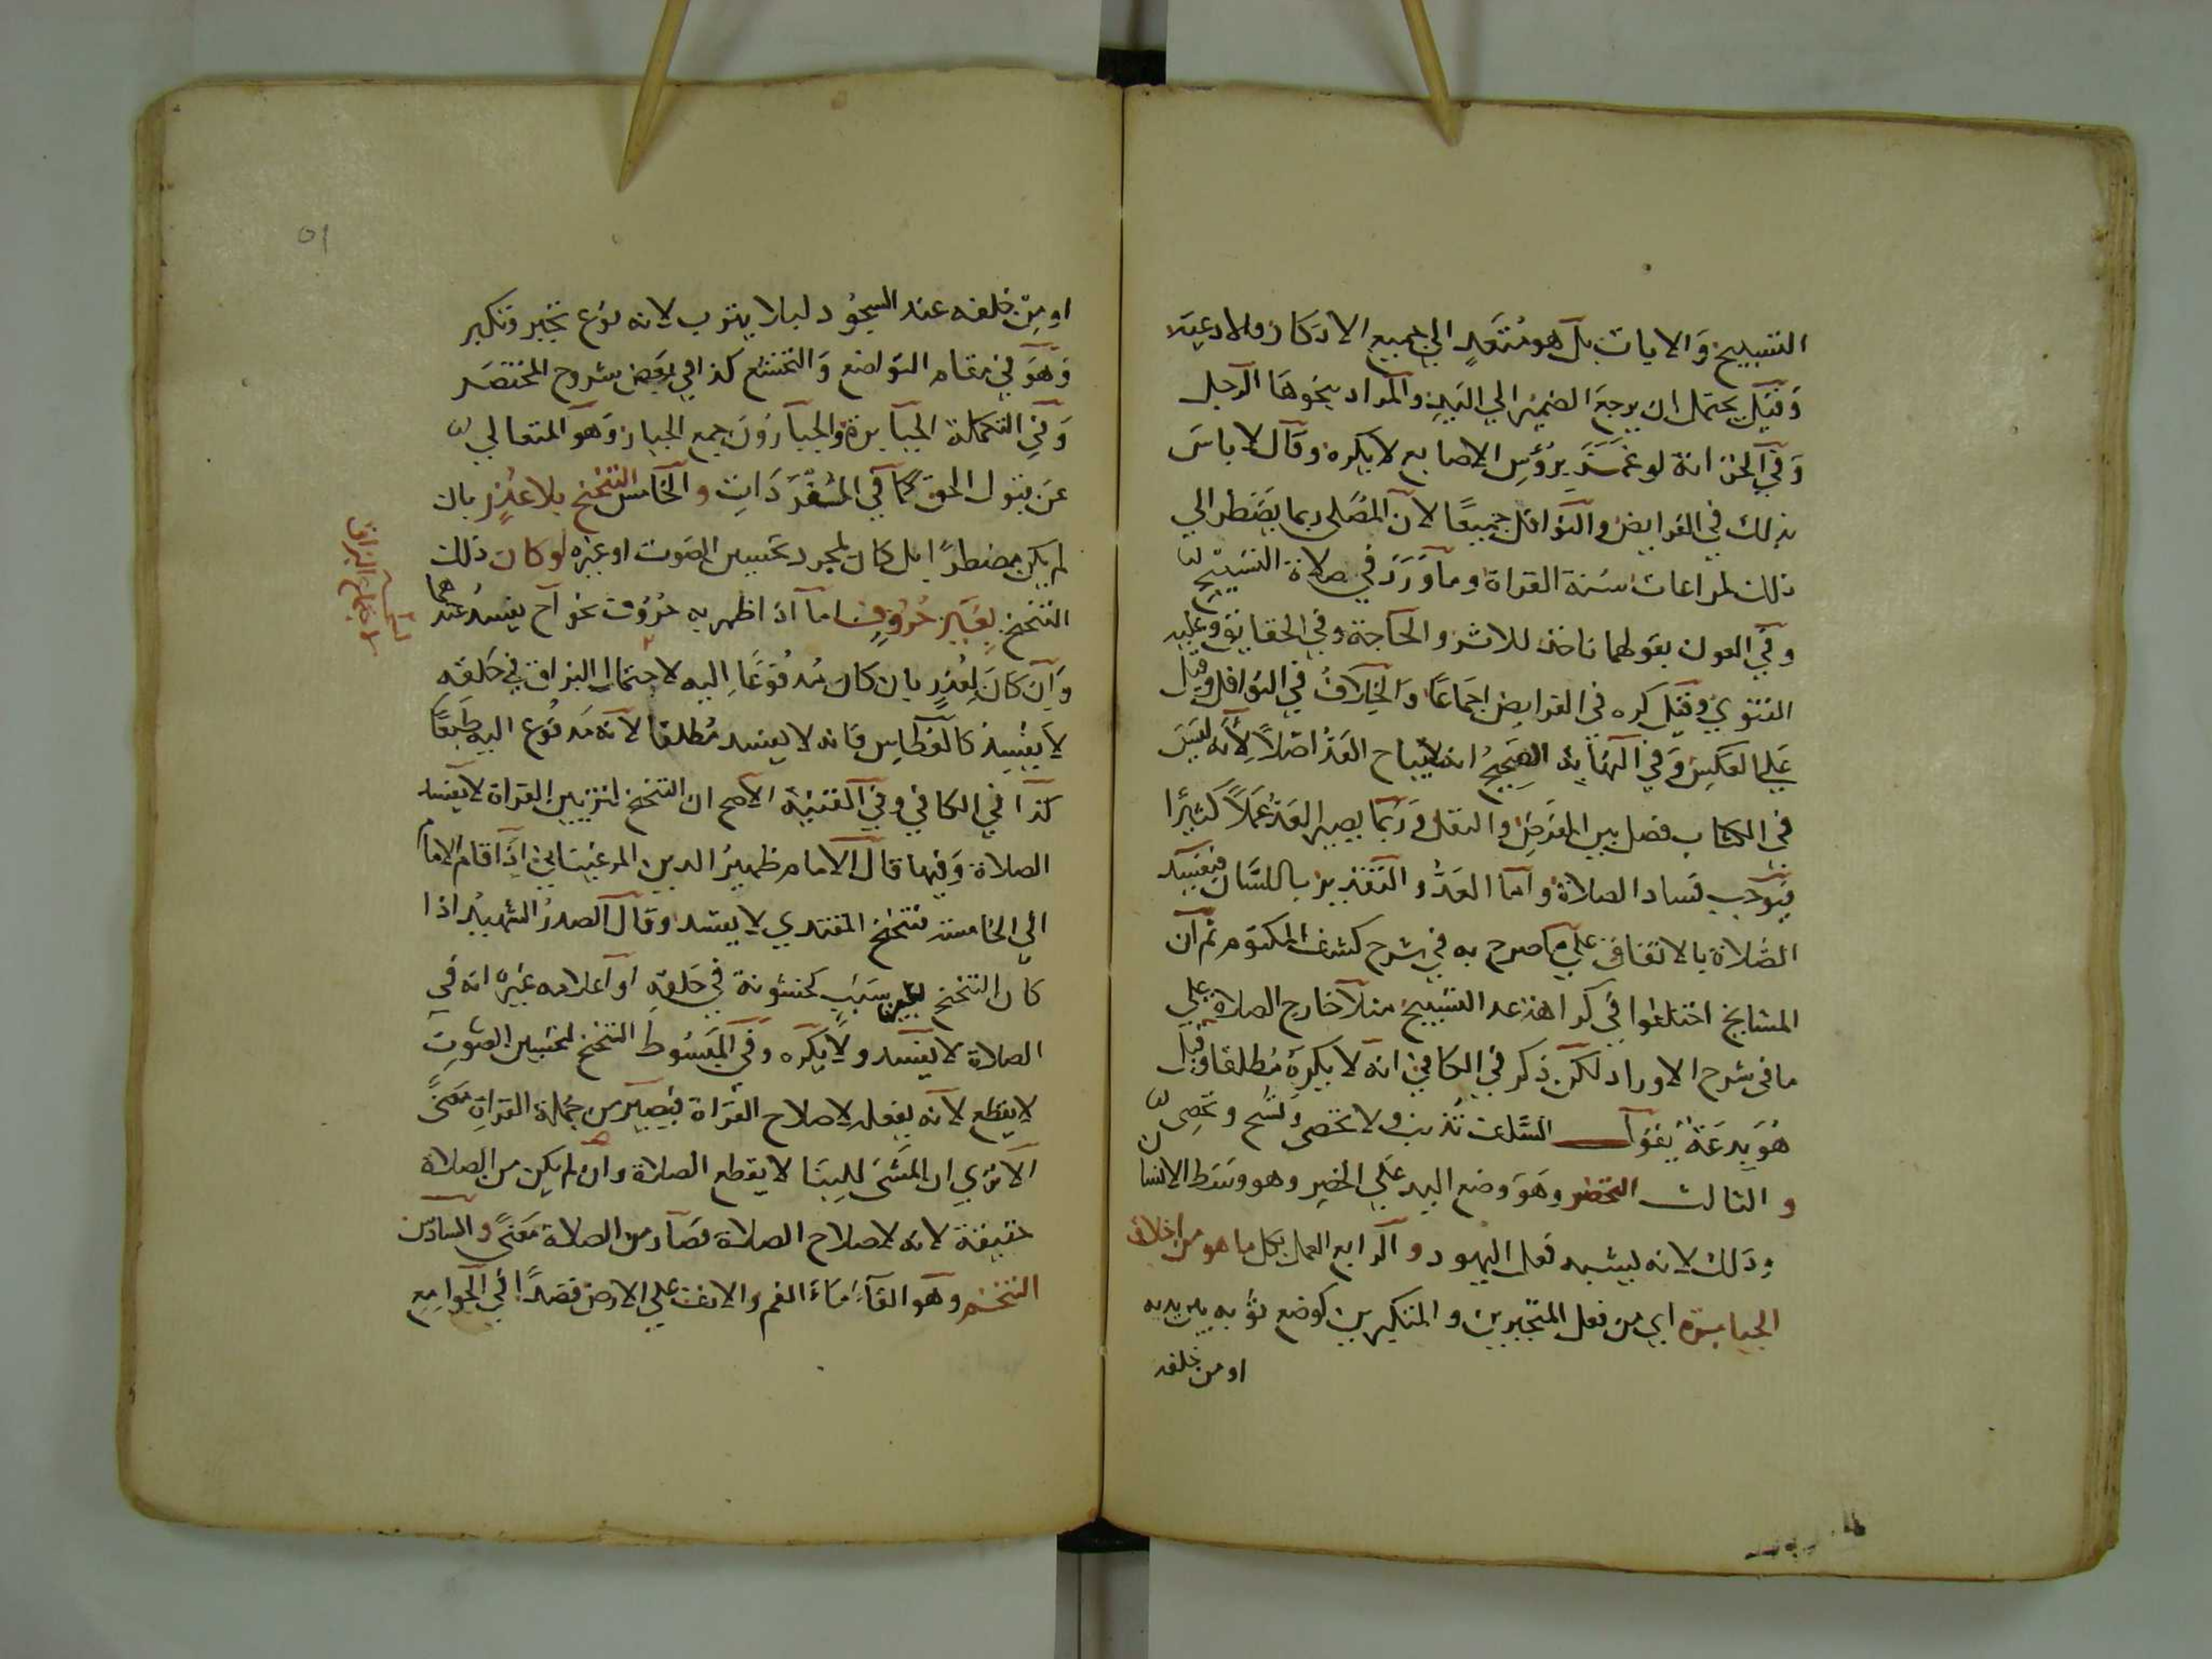 التسبيح والايات بل هو متعد الي جميع الاذكار والادعية
وقيل يحتمل ان يرجع الضمير الي اليد والمراد بنحوها الرجل
وفي الخزانة لو غمز برؤس الاصابع لا يكره وقال لا باس
بذلك في الفرايض والنوافل جميعا لان المصلي ربما يضطر الي
ذلك لمراعات سنة القراة وما ورد في صلاة التسبيح
وفي العون بقولهما ناخذ للاثر والحاجة وفي الحقايق وعليه
الفتوي وقيل كره في الفرايض اجماعا والخلاف في النوافل وقيل
علي العكس وفي النهاية الصحيح انه لا يباح العد اصلا لانه ليس
في الكتاب فصل بين الفرض والنفل وربما يصير العد عملا كثيرا
فيوجب فساد الصلاة واما العد والتقدير باللسان فيفسد
الصلاة بالاتفاق علي ما صرح به في شرح كشف المكتوم ثم ان
المشايخ اختلفوا في كراهة عد التسبيح مثلا خارج الصلاة علي
ما في شرح الاوراد لكن ذكر في الكافي انه لا يكره مطلقا وقيل
هو بدعة يقول السلف تذنب ولا تحصى وتسبح وتحصى
والثالث التخصر وهو وضع اليد علي الخصر وهو وسط الانسان
وذلك لانه ليشبه فعل اليهود والرابع العمل بكل ما هو من اخلاق
الجبابرة اي من فعل المتجبرين والمتكبرين كوضع ثوبه بين يديه
او من خلفه
او من خلفه عند السجود ليلا يتترب لانه نوع تجبر وتكبر
وهو في مقام التواضع والتخشع كذا في بعض شروح المختصر
وفي التكملة الجبابرة والجبارون جمع الجبار وهو المتعالي
عن قبول الحق كما في المفردات والخامس التنحنح بلا عذر بان
لم يكن مضطرا بل كان لمجرد تحسين الصوت او غيره لو كان ذلك
التنحنح بغير حروف اما اذا ظهر به حروف نحو اح يفسد عندهما
وان كان لعذر بان كان مدفوعا اليه لاحتمال البزاق في حلقه
لا يفسد كالعطاس فانه لا يفسد مطلقا لانه مدفوع اليه طبعا
كذا في الكافي وفي القنية الاصح ان التنحنح لتزيين القراة لا يفسد
الصلاة وفيها قال الامام ظهير الدين المرغيناني اذا قام الامام
الي الخامسة فتنحنح المقتدي لا يفسد وقال الصدر الشهيد اذا
كان التنحنح لغير سبب كخشونة في حلقه او اعلامه غيره انه في
الصلاة لا يفسد ولا يكره وفي المبسوط التنحنح لتحسين الصوت
لا يقطع لانه يفعله لاصلاح القراة فيصير من جملة القراة معنى
الا تري ان المشي للبنا لا يقطع الصلاة وان لم يكن من الصلاة
حقيقة لانه لاصلاح الصلاة فصار من الصلاة معنى والسادس
التنخم وهو القاء ماء الفم والانف علي الارض قصدا في الجوامع